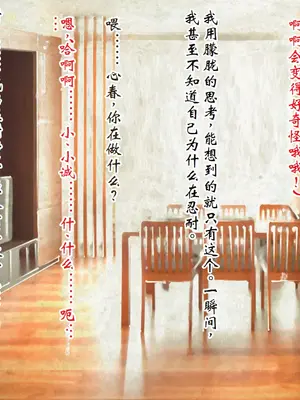 啊啊会变得好奇怪哦哦！）
我用朦胧的思考，能想到的就只有这个。一瞬间，
我甚至不知道自己为什么在忍耐。
喂……心春，你在做什么？
嗯，哈啊啊……小、小诚……什、什么……呃…